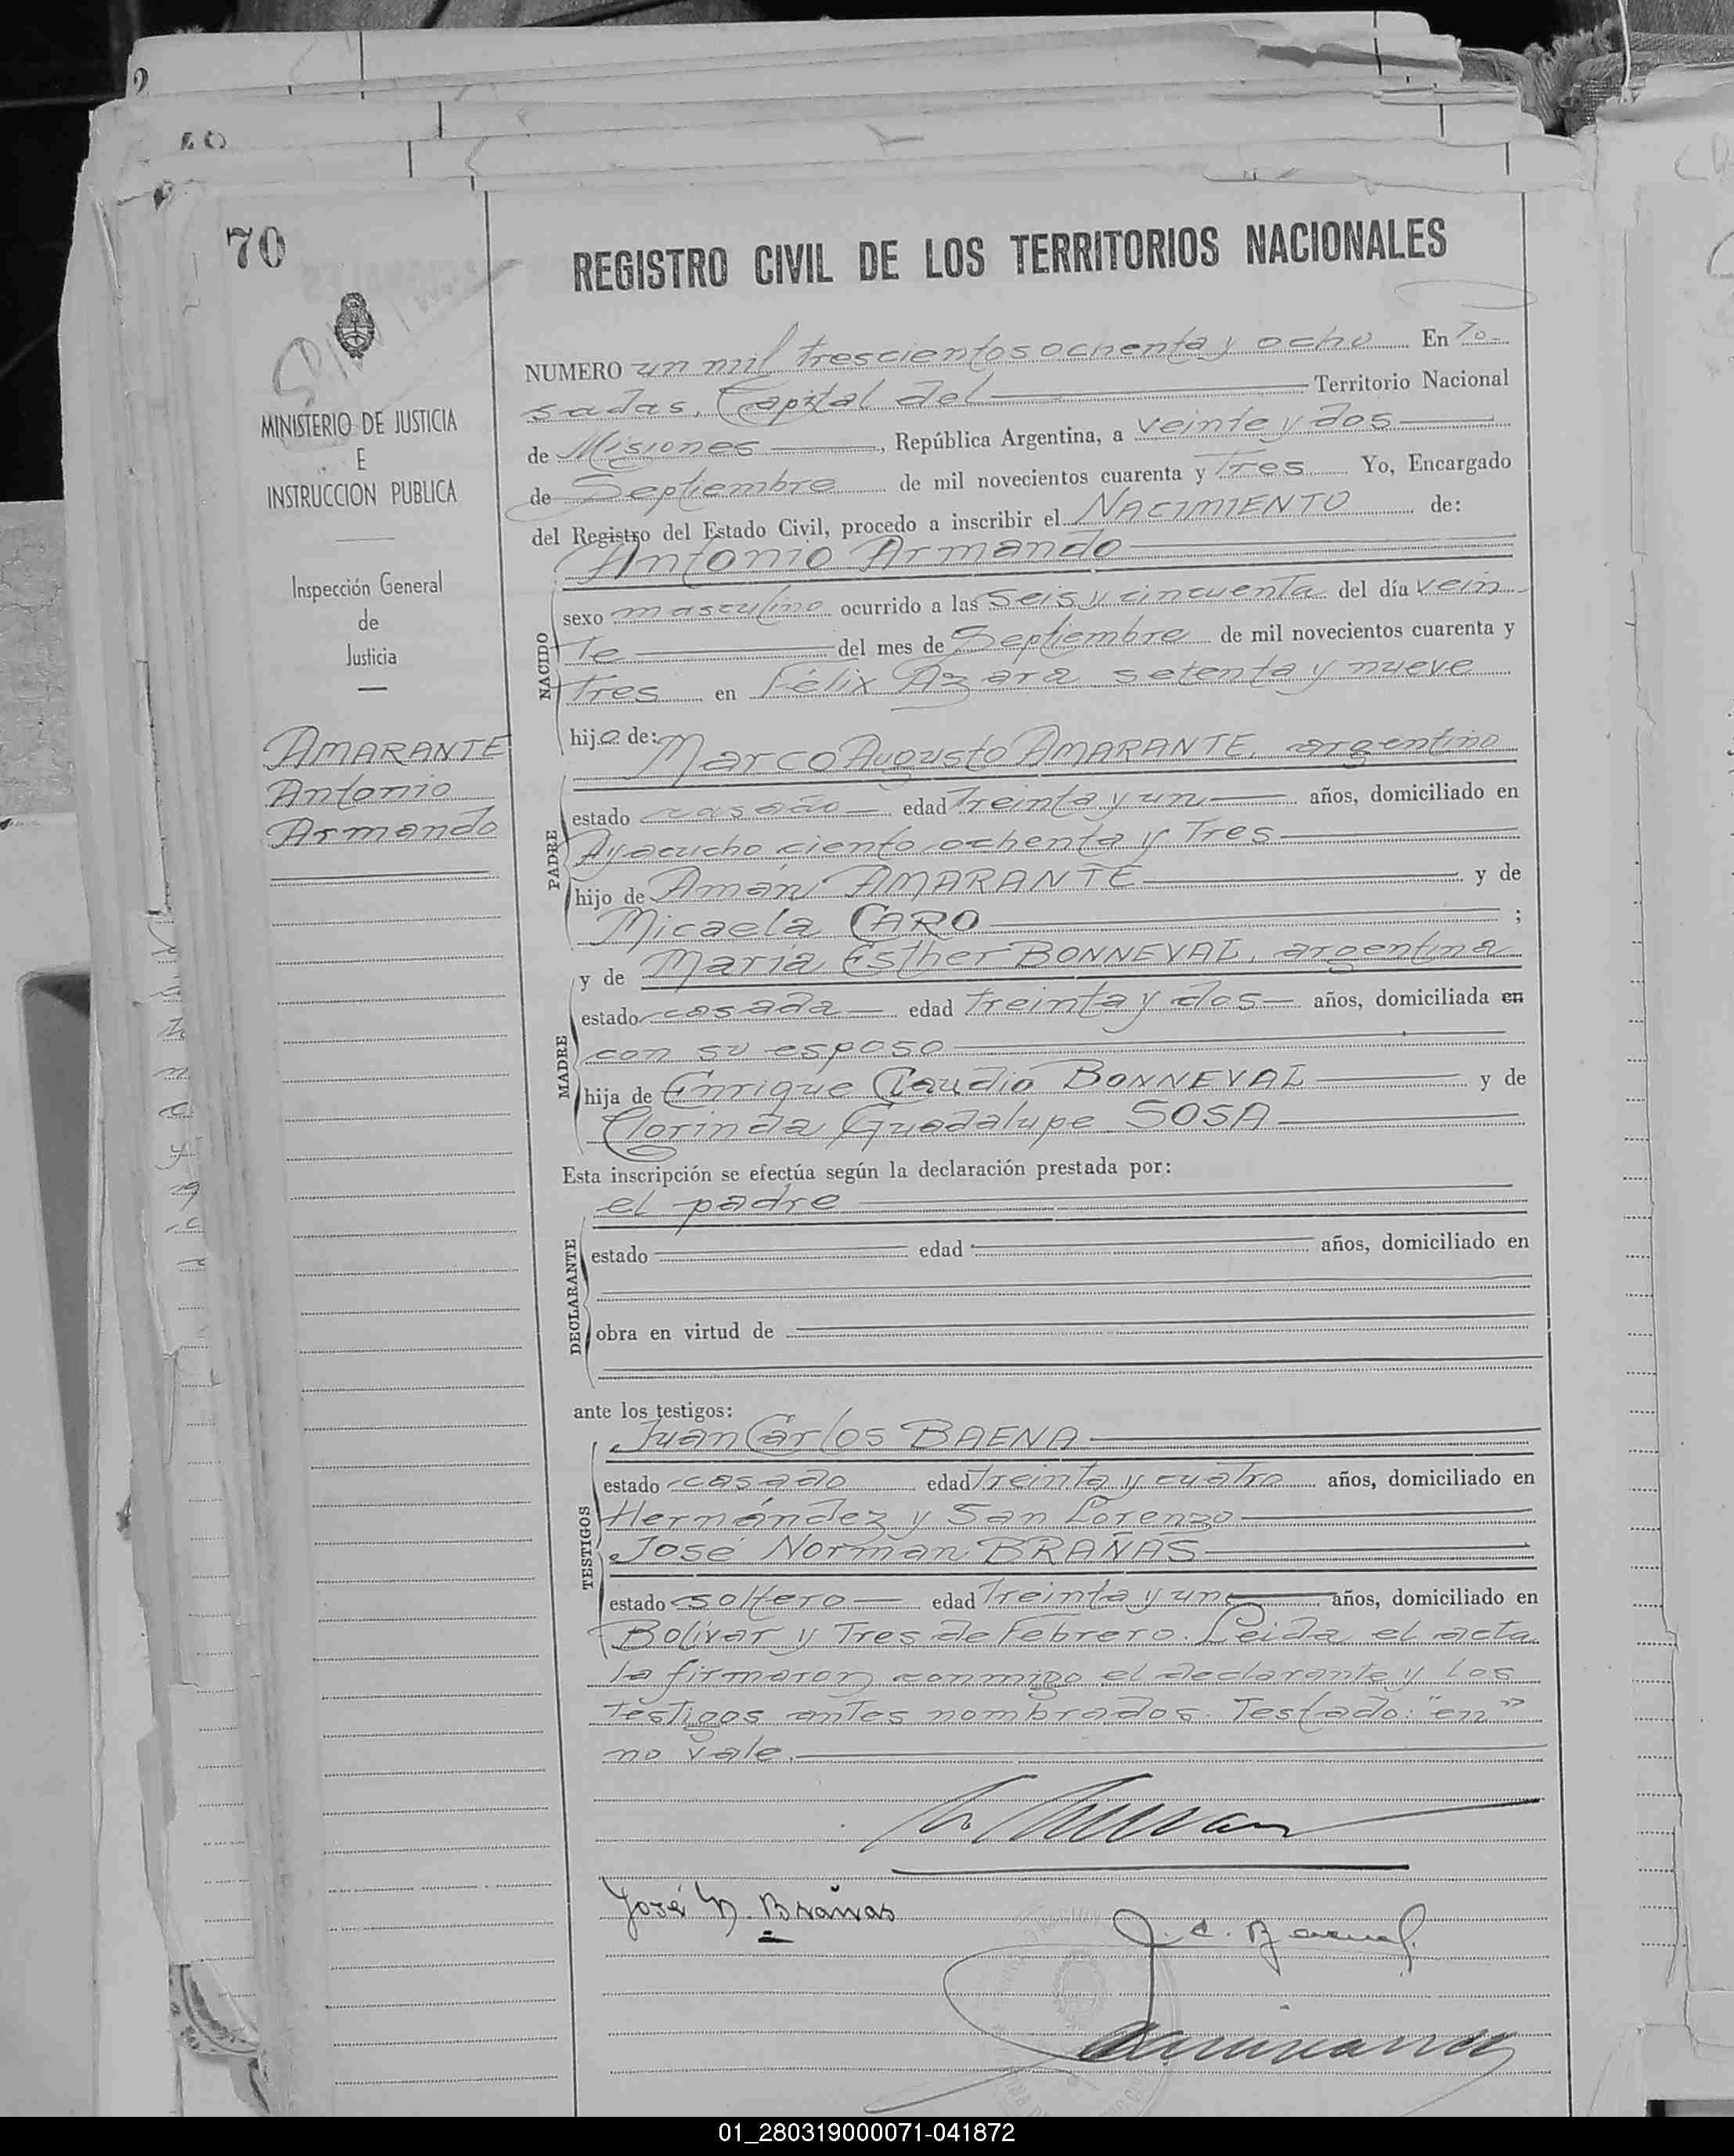 70
REGISTRO CIVIL DE LOS TERRITORIOS NACIONALES
MINISTERIO DE JUSTICIA
E
INSTRUCCION PUBLICA
Inspección General
de
Justicia
AMARANTE
Antonio
Armando
NUMERO un mil trescientos ochenta y ocho En Po-
sadas, Capital del Territorio Nacional
de Misiones, República Argentina, a veinte y dos
de Septiembre de mil novecientos cuarenta y Tres Yo, Encargado
del Registro del Estado Civil, procedo a inscribir el NACIMIENTO de:
Antonio Armando
NACIDO
sexo masculino ocurrido a las seis y cincuenta del día vein
Te del mes de Septiembre de mil novecientos cuarenta y
Tres en Félix Azara setenta y nueve
hijo de:
Marco Augusto AMARANTE, argentino
PADRE
estado casado edad Treinta y un años, domiciliado en
Ayacucho ciento ochenta y Tres
hijo de Amán AMARANTE y de
Micaela CARO ;
y de María Esther BONNEVAL, argentina
MADRE
estado casada edad treinta y dos años, domiciliada en
con su esposo
hija de Enrique Claudio BONNEVAL y de
Clorinda Guadalupe SOSA
Esta inscripción se efectúa según la declaración prestada por:
el padre
DECLARANTE
estado edad años, domiciliado en
obra en virtud de
ante los testigos:
Juan Carlos BAENA
TESTIGOS
estado casado edad Treinta y cuatro años, domiciliado en
Hernández y San Lorenzo
José Norman BRAÑAS
estado soltero edad Treinta y un años, domiciliado en
Bolívar y Tres de Febrero. Leida el acta
la firmaron conmigo el declarante y los
testigos antes nombrados. Testado: "en"
no vale.
José N. Brañas
J. C. Baena
01_280319000071-041872